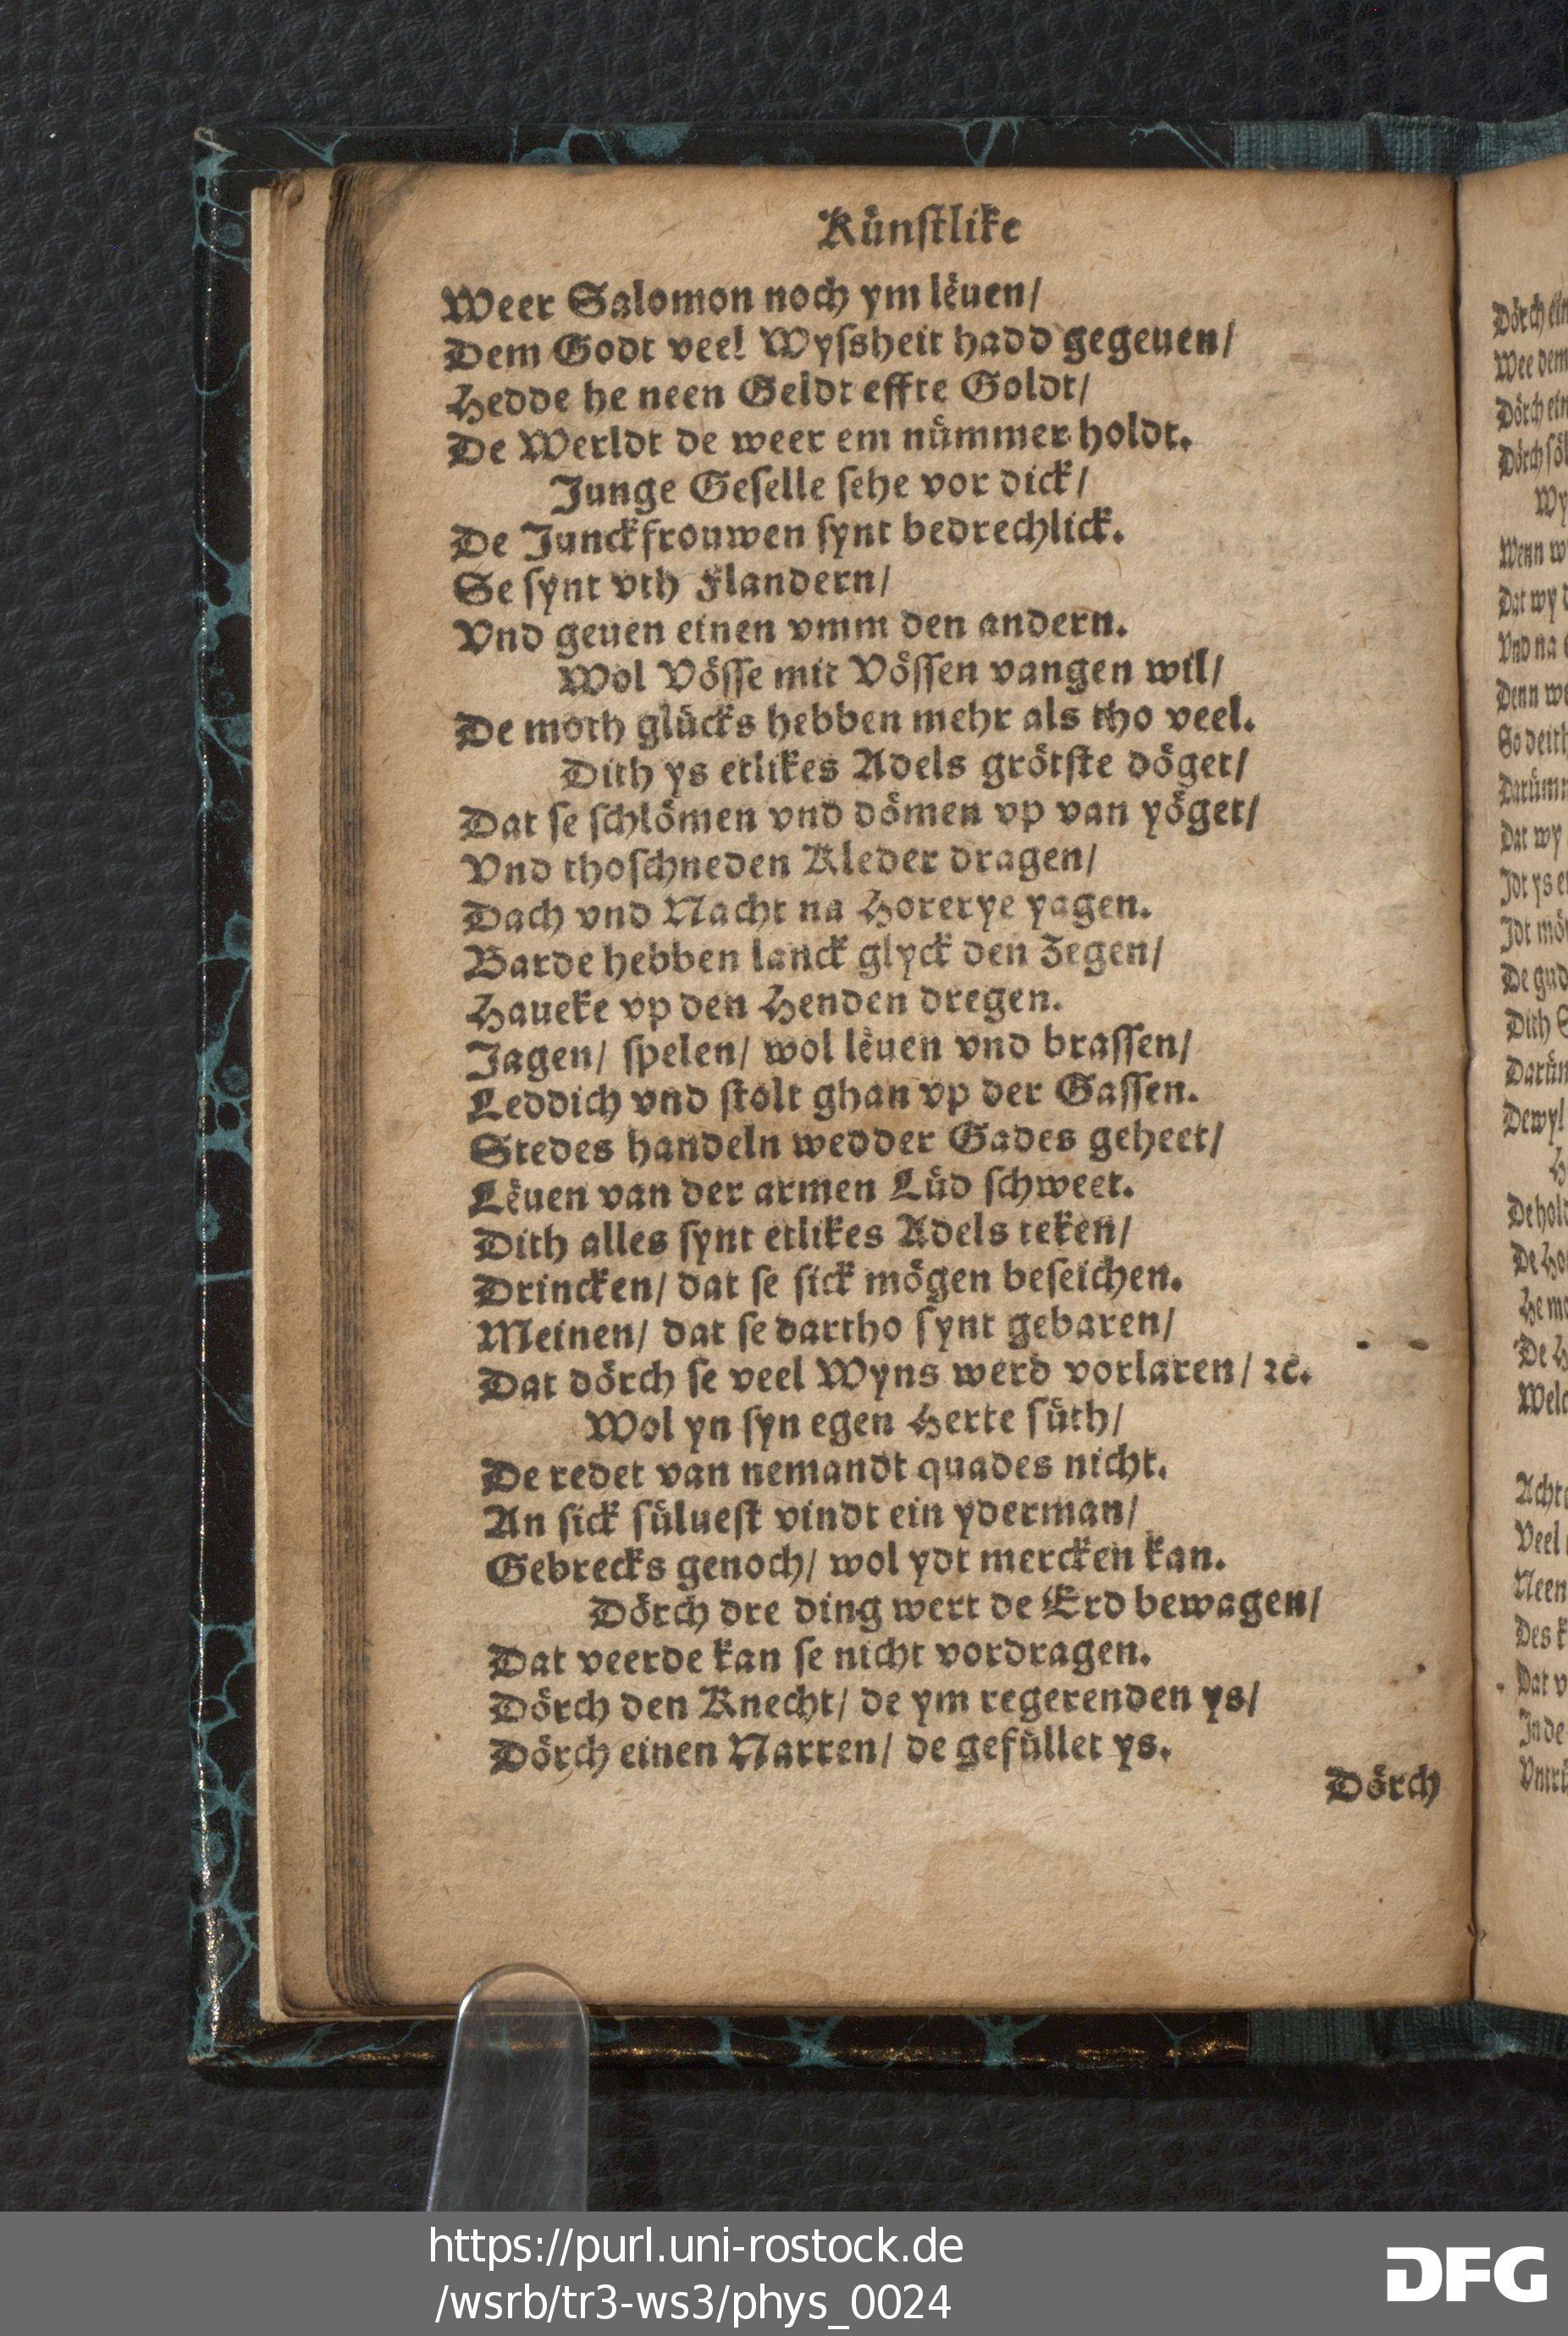 Künſtlike
Weer Salomon noch ym lëuen/
Dem Godt veel Wyſsheit hadd gegeuen/
Hedde he neen Geldt effte Goldt/
De Werldt de weer em nümmer holdt.
Junge Geſelle ſehe vor dick/
De Junckfrouwen ſynt bedrechlick.
Se ſynt vth Flandern/
Vnd geuen einen vmm den andern.
Wol Vösſe mit Vösſen vangen wil/
De moth glücks hebben mehr als tho veel.
Dith ys etlikes Adels grötſte döget/
Dat ſe ſchlömen vnd dömen vp van yöget/
Vnd thoſchneden Kleder dragen/
Dach vnd Nacht na Horerye yagen.
Barde hebben lanck glyck den Zegen/
Haueke vp den Henden dregen.
Jagen/ ſpelen/ wol lëuen vnd braſſen/
Leddich vnd ſtolt ghan vp der Gaſſen.
Stedes handeln wedder Gades geheet/
Lëuen van der armen Lüd ſchweet.
Dith alles ſynt etlikes Adels teken/
Drincken/ dat ſe ſick mögen beſeichen.
Meinen/ dat ſe dartho ſynt gebaren/
Dat dörch ſe veel Wyns werd vorlaren/ ꝛc.
Wol yn ſyn egen Herte ſüth/
De redet van nemandt quades nicht.
An ſick ſülueſt vindt ein yderman/
Gebrecks genoch/ wol ydt mercken kan.
Dörch dre ding wert de Erd bewagen/
Dat veerde kan ſe nicht vordragen.
Dörch den Knecht/ de ym regerenden ys/
Dörch einen Narren/ de gefüllet ys.
Dörch
https://purl.uni-rostock.de
/wsrb/tr3-ws3/phys_0024
DFG